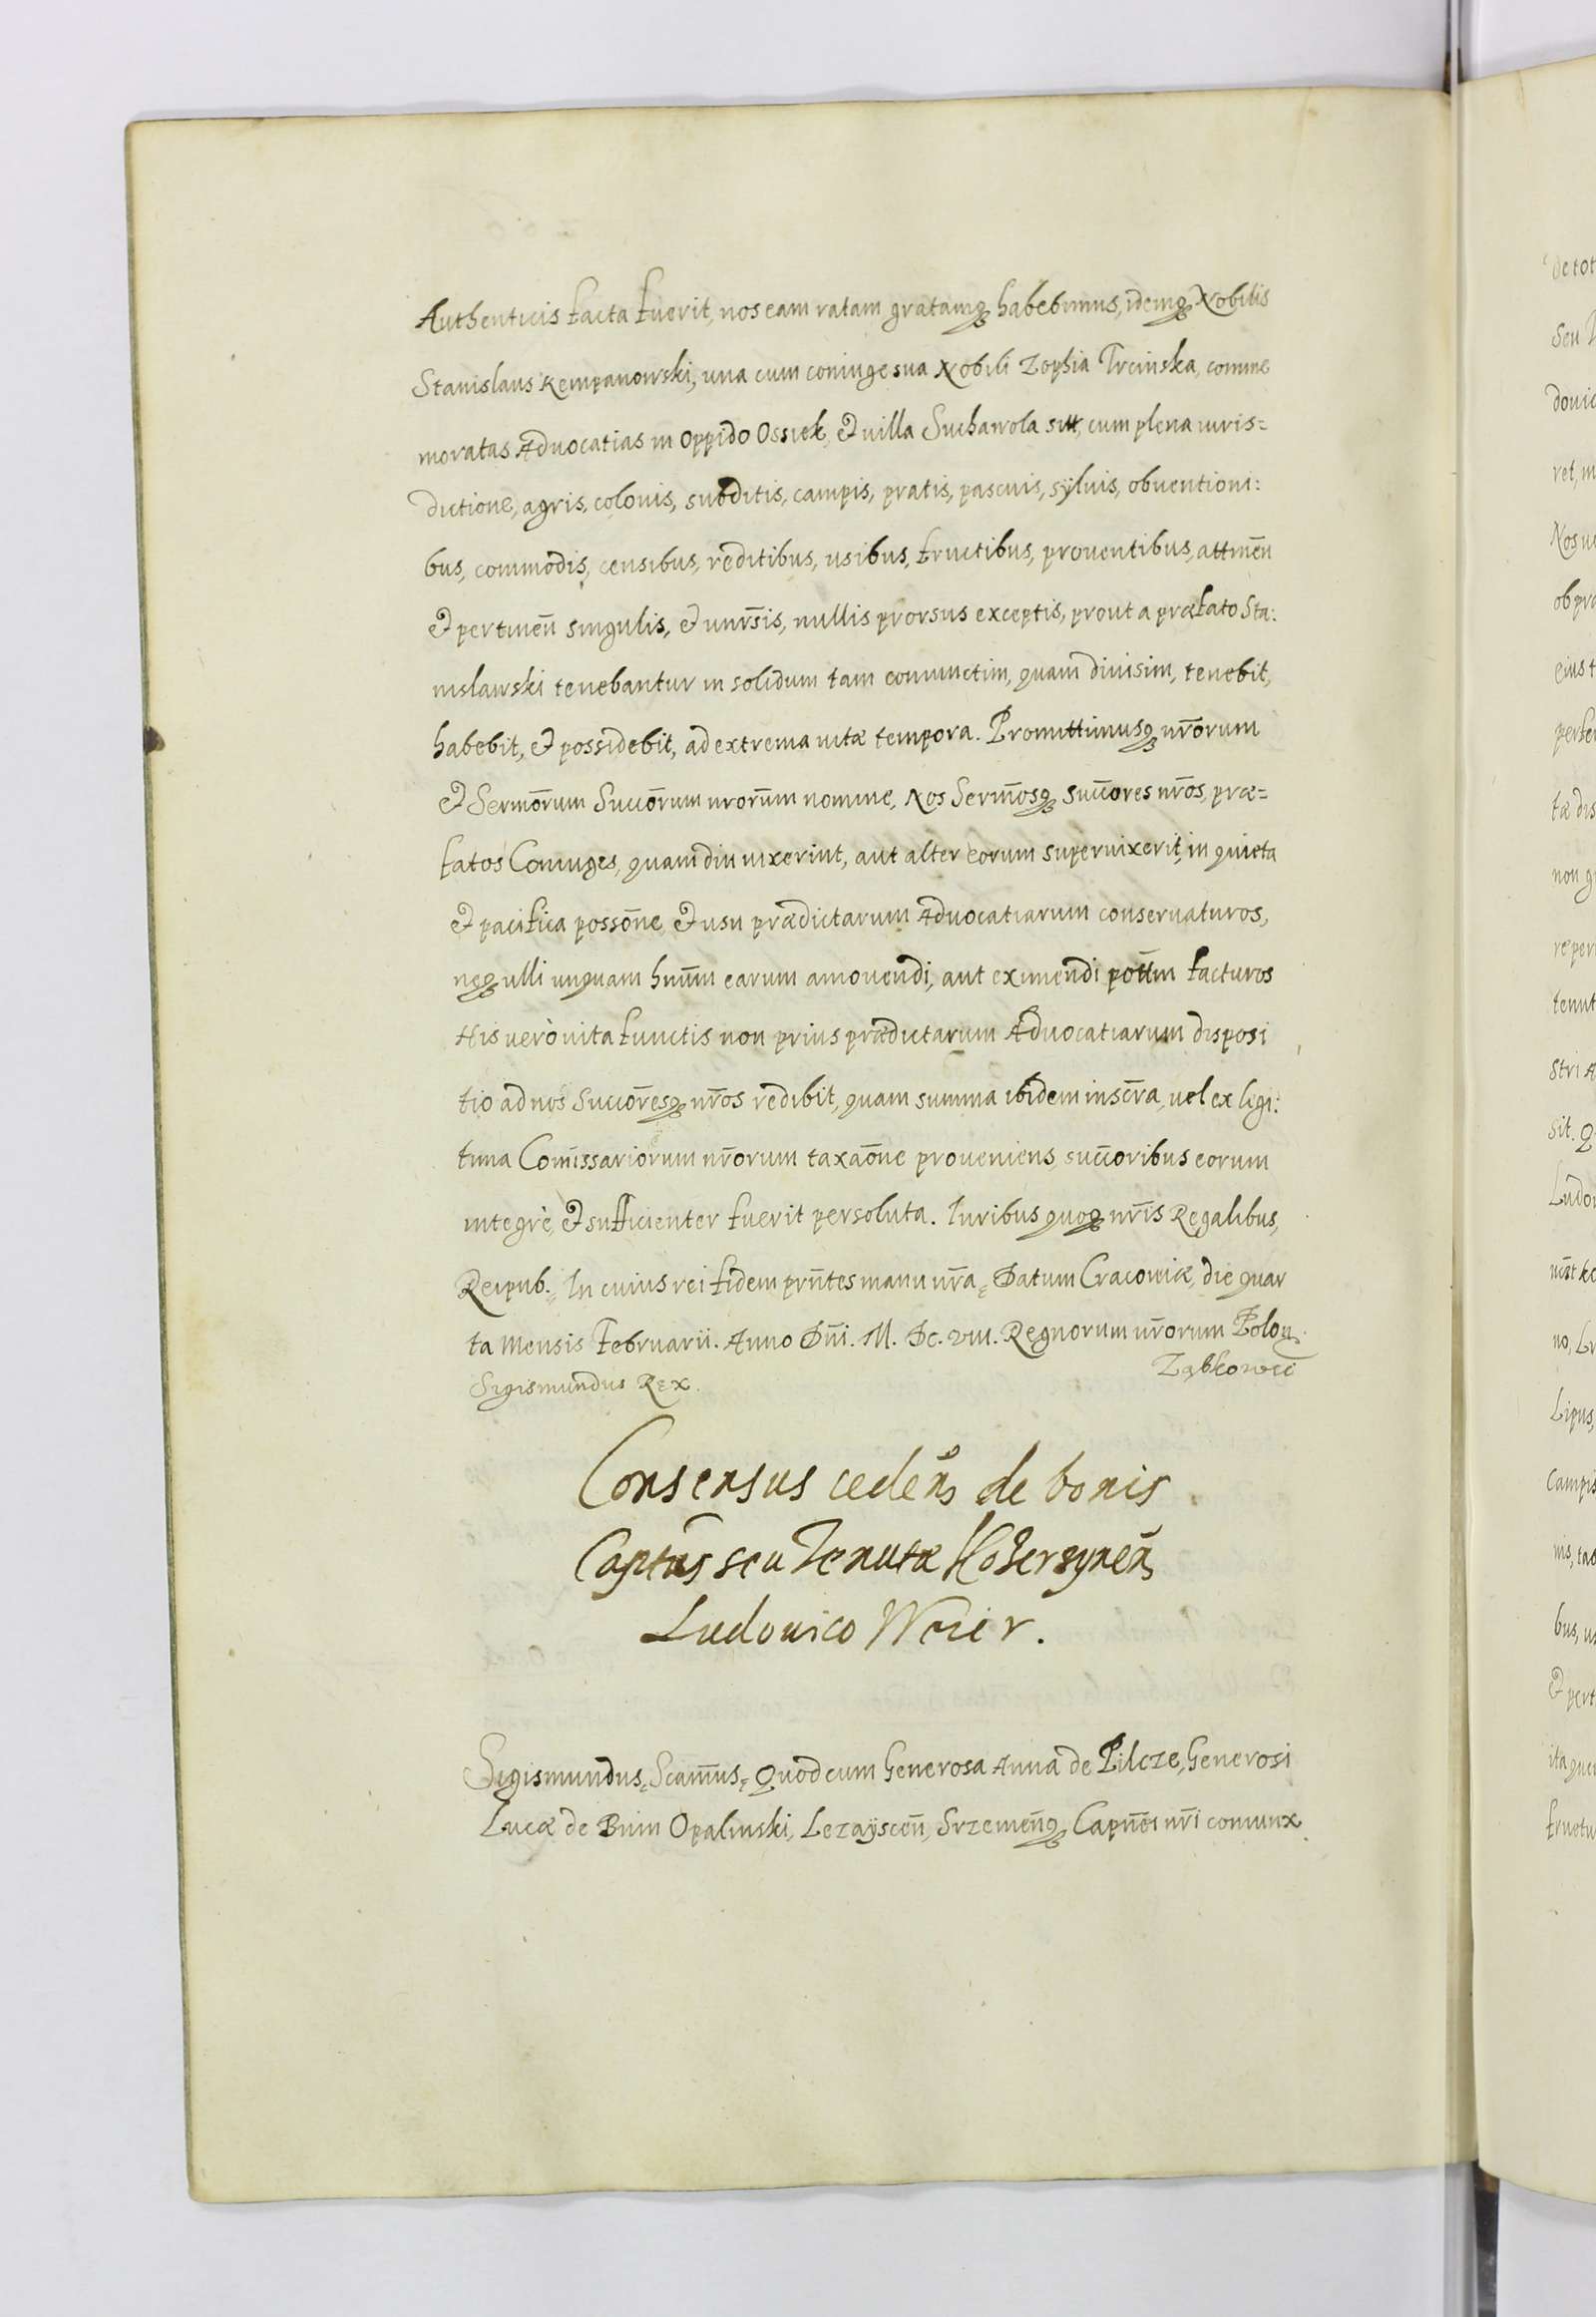 Authenticis facta fuerit, nos eam ratam gratamq habebimus, idemq Nobilis
Stanislaus Rempanowski, una cum coniuge sua Nobili Zophia Trcinska, comme
moratas Advocatias in Oppido Ossiek, et villa Suchawola sitt, cum plena iuris=
dictione, agris, colonis, subditis, campis, pratis, pascuis, sylvis, obventioni:
bus, commodis, censibus, reditibus, usibus, fructibus, proventibus, attinen̄
et pertinen̄ singulis, et univr̄sis, nullis prorsus exceptis, prout a præfato Sta:
nislawski tenebantur in solidum tam coniunctim, quam divisim, tenebit,
habebit, et possidebit, ad extrema vitæ tempora. Promittimusq nr̄orum
et Sermōrum Succōrum nrorūm nomine, Nos Serm̄osq succ̄ores nr̄os, præ=
fatos Coniuges, quam diu vixerint, aut alter eorum supervixerit, in quieta
et pacifica possōne, et usu prædictarum Advocatiarum conservaturos,
neq ulli unquam hnūm earum amovendi, aut eximendi pott̄m facturos
His verò vita functis non prius prædictarum Advocatiarum disposi
tio ad nos Succōresq nr̄os redibit, quam summa ibidem inscr̄a, vel ex ligi:
tima Com̄issariorum nr̄orum taxaōne proveniens, succ̄oribus eorum
integrè, et sufficienter fuerit persoluta. Iuribus quoq nr̄is Regalibus,
Reipub. In cuius rei fidem prn̄tes manu nr̄a. Datum Cracoviæ, die quar
ta Mensis Februarii. Anno Dn̄i. M. Dc. VIII. Regnorum nr̄orum Polon
Sigismundus Rex. Ząbkowic̄
Consensus ceden̄ de bonis
Capt̄us seu Tenutæ Kosersynen̄
Ludovico Weier.
Sigismundus, Scām̄us, Quod cum Generosa Anna de Pilcze, Generosi
Lucæ de Bnin Opalinski, Lezayscen̄, Srzemen̄q Capn̄ei nr̄i coniunx